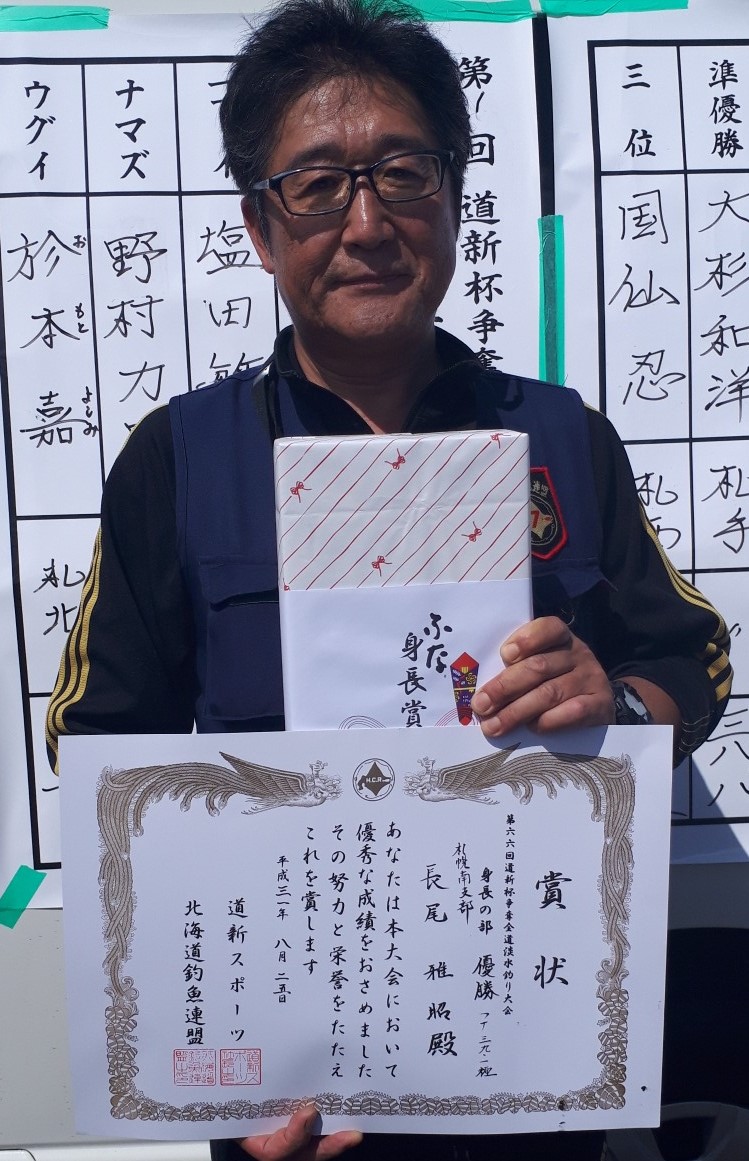 準優勝
大杉和洋
札手
三位
国仙忍
札西
三八
第
回 道新杯争奪
塩田
ナマズ
野村力
ウグイ
於本嘉
お もと よしみ
札北
ふな
身長賞
H.C.R
賞状
第六六回道新杯争奪全道淡水釣り大会
身長の部 優勝
フナ 三九・一糎
札幌南支部
長尾 雅昭殿
あなたは本大会において
優秀な成績をおさめました
その努力と栄誉をたたえ
これを賞します
平成三一年 八月二五日
道新スポーツ
北海道釣魚連盟